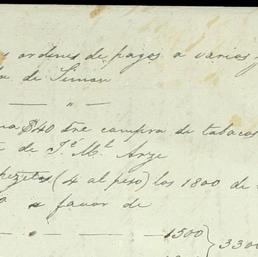 ordenes de pagos a varios
de Simon
— " —
$40 tre compra de tabacos
de Je. Ml. Arze
pezetas (4 al peso) los 1800 de
a favor de
— " — — 1500 } 3300